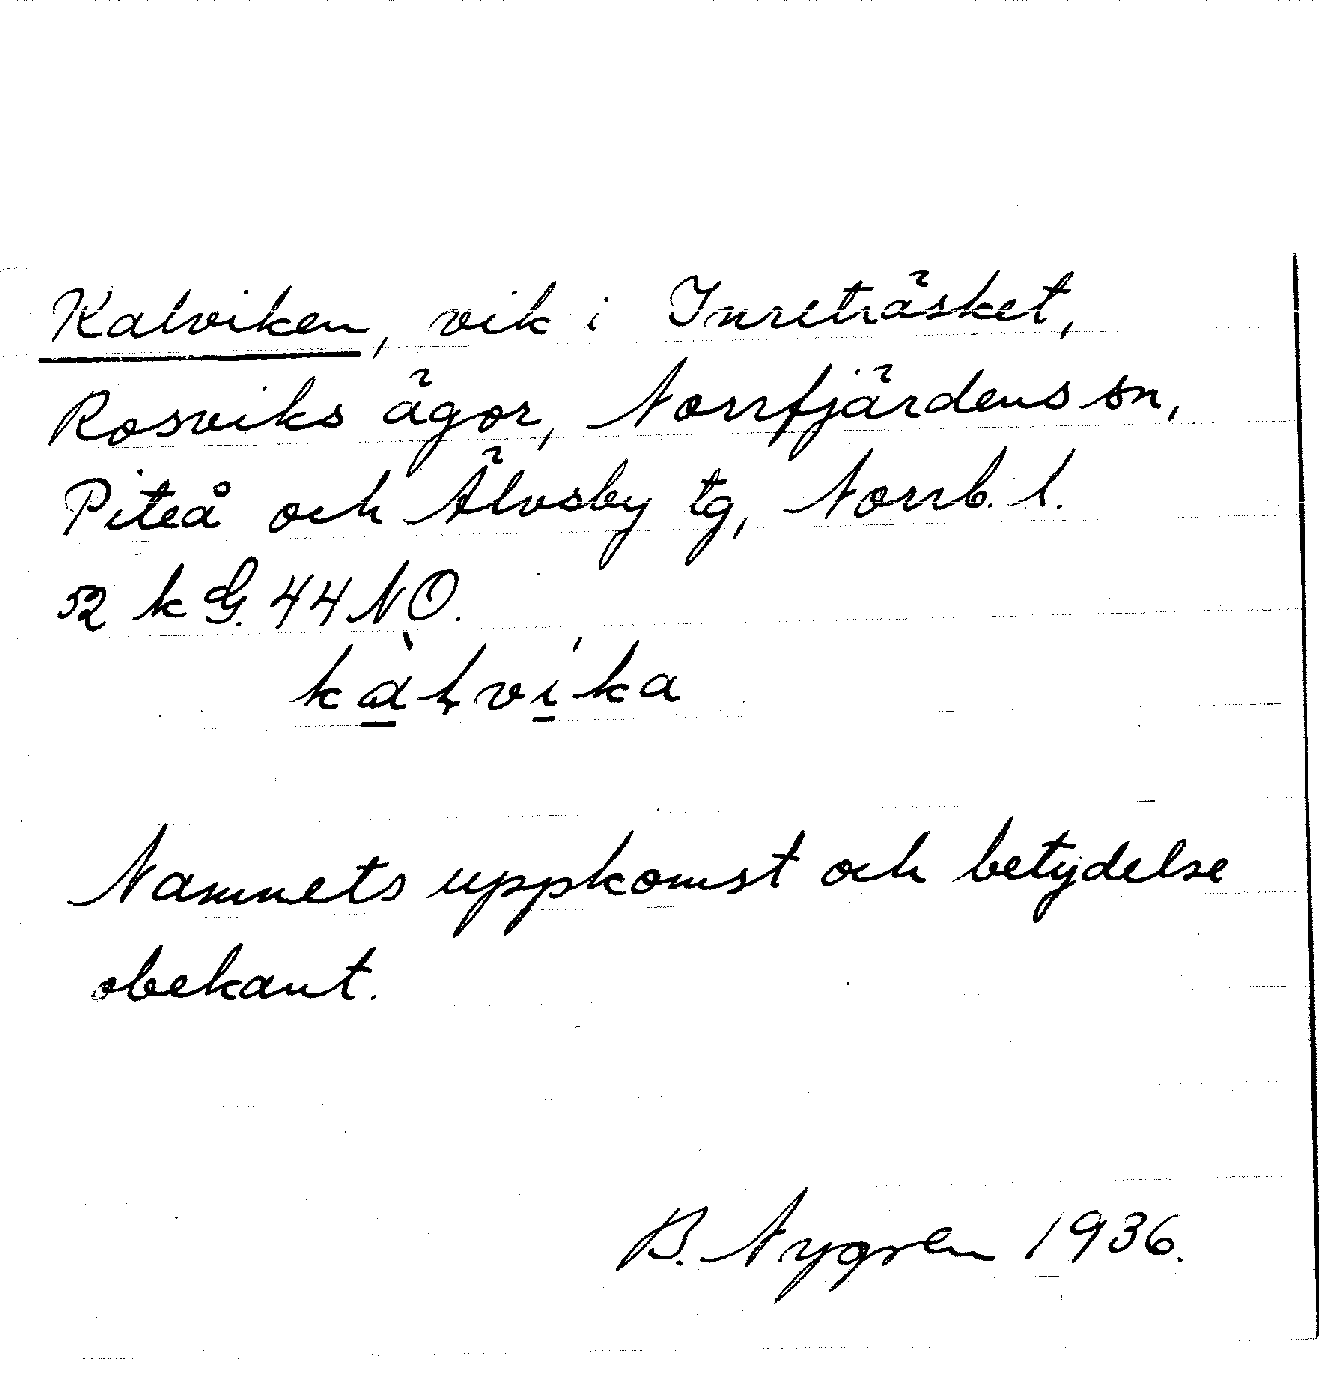 Kalviken, vik i Inreträsket,
Rosviks ägor, Norrfjärdens sn,
Piteå och Älvsby tg, Norrb. l.
52 k G. 44 NO.
kàlvíka
Namnets uppkomst och betydelse
obekant.
B. Nygren 1936.